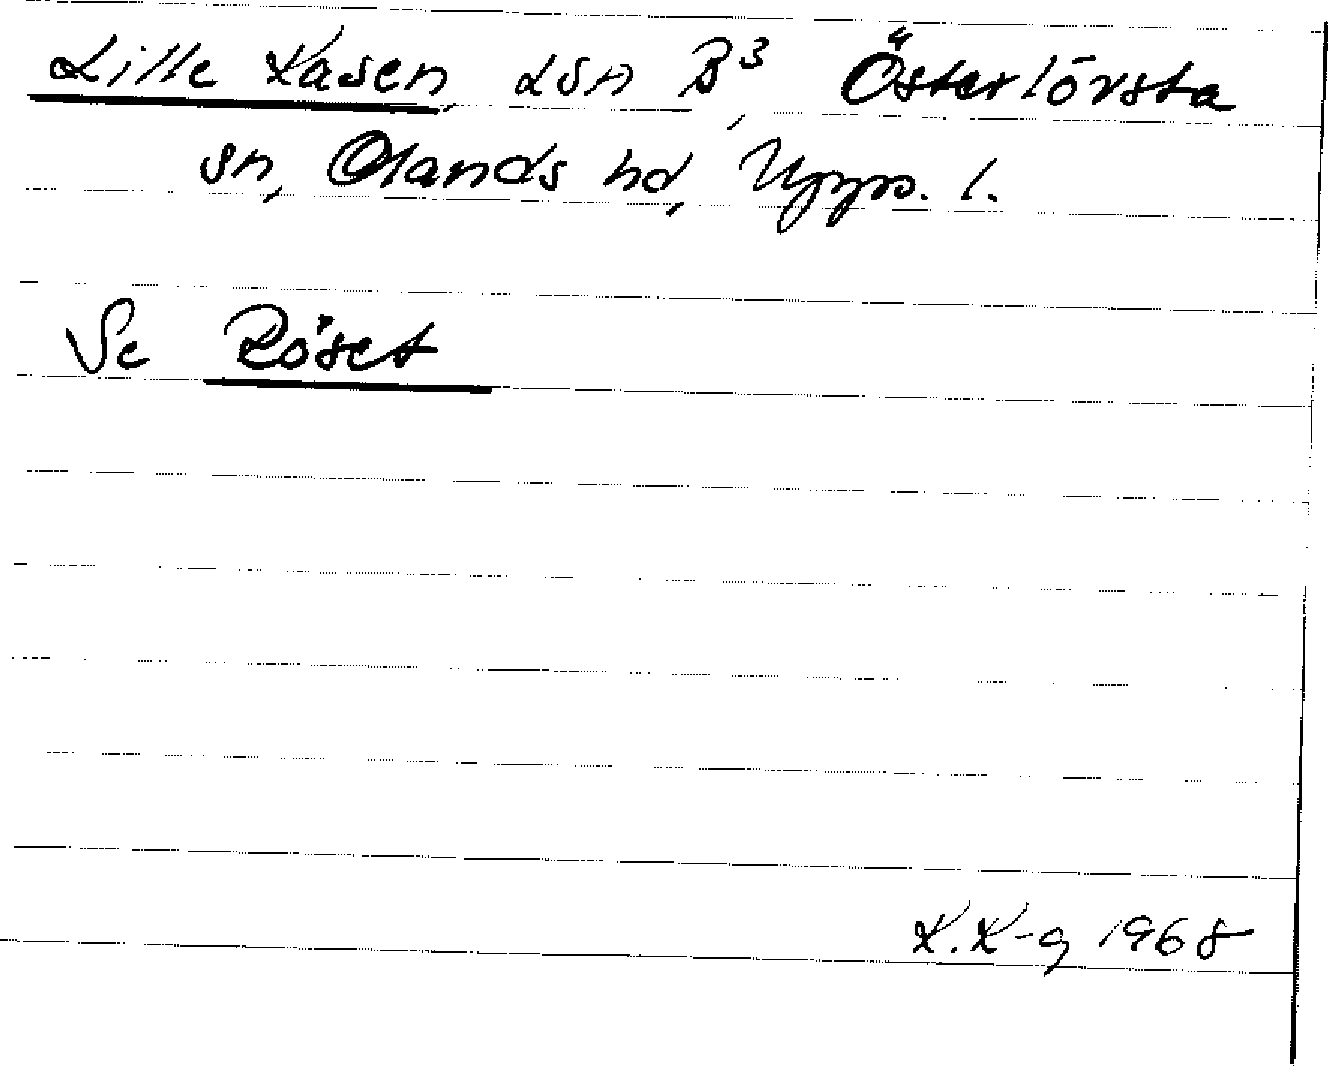 Lille Kasen, lsn B³, Österlövsta
sn, Olands hd, Upps. l.
Se Röset
K. K-g 1968